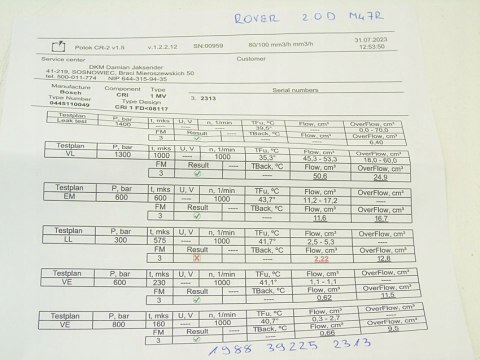 ROVER 2.0D M47R
Potok CR-2 v1.5 v.1.2.2.12 SN:00959 80/100 mm3/h mm3/h 31.07.2023
12:53:50
Service center Customer
DKM Damian Jaksender
41-219, SOSNOWIEC, Braci Mieroszewskich 50
tel. 500-011-774 NIP 644-315-94-35
Manufacture Component Type Serial numbers
Bosch CRI 1 MV
Type Number Type Design 3. 2313
0445110049 CRI 1 FD<08117
Testplan P, bar t, mks U, V n, 1/min TFu, ºC Flow, cm³ OverFlow, cm³
Leak test 1400 ---- ---- 39,5° ---- 0,0 - 70,0
FM Result TBack, ºC Flow, cm³ OverFlow, cm³
3 ---- ---- 6,40
Testplan P, bar t, mks U, V n, 1/min TFu, ºC Flow, cm³ OverFlow, cm³
VL 1300 1000 ---- 1000 35,3° 45,3 - 53,3 18,0 - 60,0
FM Result TBack, ºC Flow, cm³ OverFlow, cm³
3 ---- 50,6 24,9
Testplan P, bar t, mks U, V n, 1/min TFu, ºC Flow, cm³ OverFlow, cm³
EM 600 600 ---- 1000 43,7° 11,2 - 17,2 ----
FM Result TBack, ºC Flow, cm³ OverFlow, cm³
3 ---- 11,6 16,7
Testplan P, bar t, mks U, V n, 1/min TFu, ºC Flow, cm³ OverFlow, cm³
LL 300 575 ---- 1000 41,7° 2,5 - 5,3 ----
FM Result TBack, ºC Flow, cm³ OverFlow, cm³
3 X ---- 2,22 12,8
Testplan P, bar t, mks U, V n, 1/min TFu, ºC Flow, cm³ OverFlow, cm³
VE 600 230 ---- 1000 41,1° 1,1 - 1,1 ----
FM Result TBack, ºC Flow, cm³ OverFlow, cm³
3 ---- 0,62 11,5
Testplan P, bar t, mks U, V n, 1/min TFu, ºC Flow, cm³ OverFlow, cm³
VE 800 160 ---- 1000 40,7° 0,3 - 2,7 ----
FM Result TBack, ºC Flow, cm³ OverFlow, cm³
3 ---- 0,66 9,5
1988 39225 2313